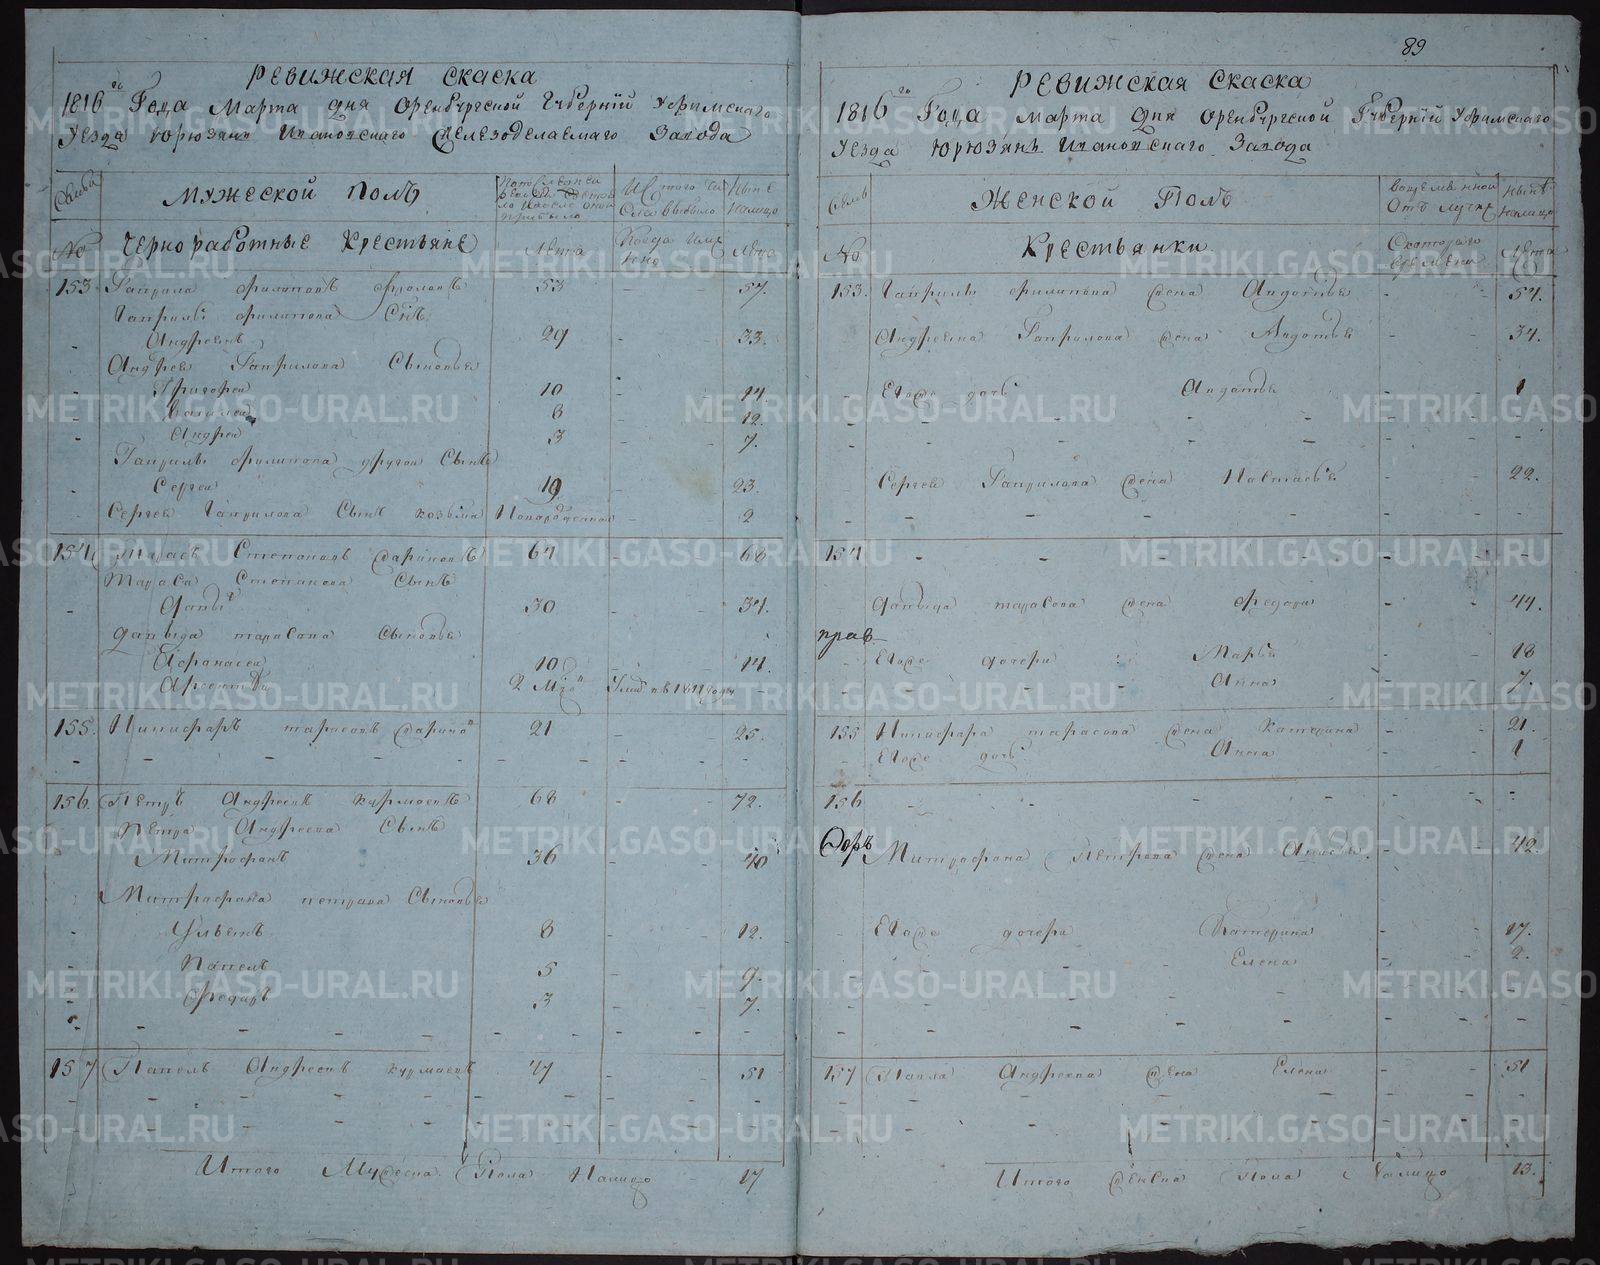 89
РЕВИЖСКАЯ СКАСКА
1816го Года Марта дня Оренбургской Губернїи Уфимскаго
Уезда Юрюзань Ивановскаго Железоделаемаго Завода
Семьи
МУЖЕСКОЙ ПОЛЪ
Из того числа выбыло
Ныне налицо
No
ЧЕРНОРАБОТНЫЕ КРЕСТЬЯНЕ
Лета
Когда имянно
Лета
153 Гаврила Филиповъ Фроловъ 53 - - 57.
Гаврилы Филипова Сынъ
- Андреянъ 29 - - 33.
Андрея Гаврилова Сыновья
- Григорей 10 - - 14
- Василей 8 - - 12.
- Андрей 3 - - 7.
Гаврилы Филипова другой Сынъ
- Сергей 19 - - 23.
Сергея Гаврилова Сынъ Козьма Новорожденной - - 2
154 Тарасъ Степановъ 64 - - 68
Тараса Степанова Сынъ
- Давыдъ 30 - - 34.
Давыда Тарасова Сыновья
Афанасей 10 - - 14.
Арсентей 2 Умре в 1811 году -
155. Никифоръ Тарасовъ 21 - - 25.
- - - - - - - -
156. Петръ Андреевъ Курмаевъ 68 - - 72.
Петра Андреева Сынъ
Митрофанъ 36 - - 40
Митрофана Петрова Сыновья
- Ульянъ 8 - - 12.
- Павелъ 5 - - 9.
- Федоръ 3 - - 7.
- - - - - - - -
157 Павелъ Андреевъ Курмаевъ 47 - - 51
- - - - - - - -
- - - - - - - -
Итого Мужеска Пола Налицо 17
РЕВИЖСКАЯ СКАСКА
1816го Года Марта Дня Оренбургской Губернїи Уфимскаго
Уезда Юрюзань Ивановскаго Завода
Семьи
ЖЕНСКОЙ ПОЛЪ
Во временной отлучке
Ныне налицо
No
КРЕСТЬЯНКИ
С котораго времяни
Лета
153. Гаврилы Филипова жена Авдотья - - 54.
Андреяна Гаврилова жена Авдотья - - 34.
- Евоже дочь Авдотья - - 1
- - - - - - -
- - - - - - -
Сергея Гаврилова жена Настасья - - 22.
- - - - - - -
154 - - - - - - -
Давыда Тарасова жена Федора - - 44.
прав
- Евоже дочери Марья - - 18
- - - Анна - - 7.
155 Никифора Тарасова жена Катерина - - 21.
Евоже дочь Анна - - 1
156 - - - - - - -
Митрофана Петрова жена Анисья - - 42.
- Евоже дочери Катерина - - 17.
- - Елена - - 2.
- - - - - - -
- - - - - - -
157 Павла Андреева жена Елена - - 51
- - - - - - -
- - - - - - -
Итого Женска Пола Налицо 13.
METRIKI.GASO-URAL.RU